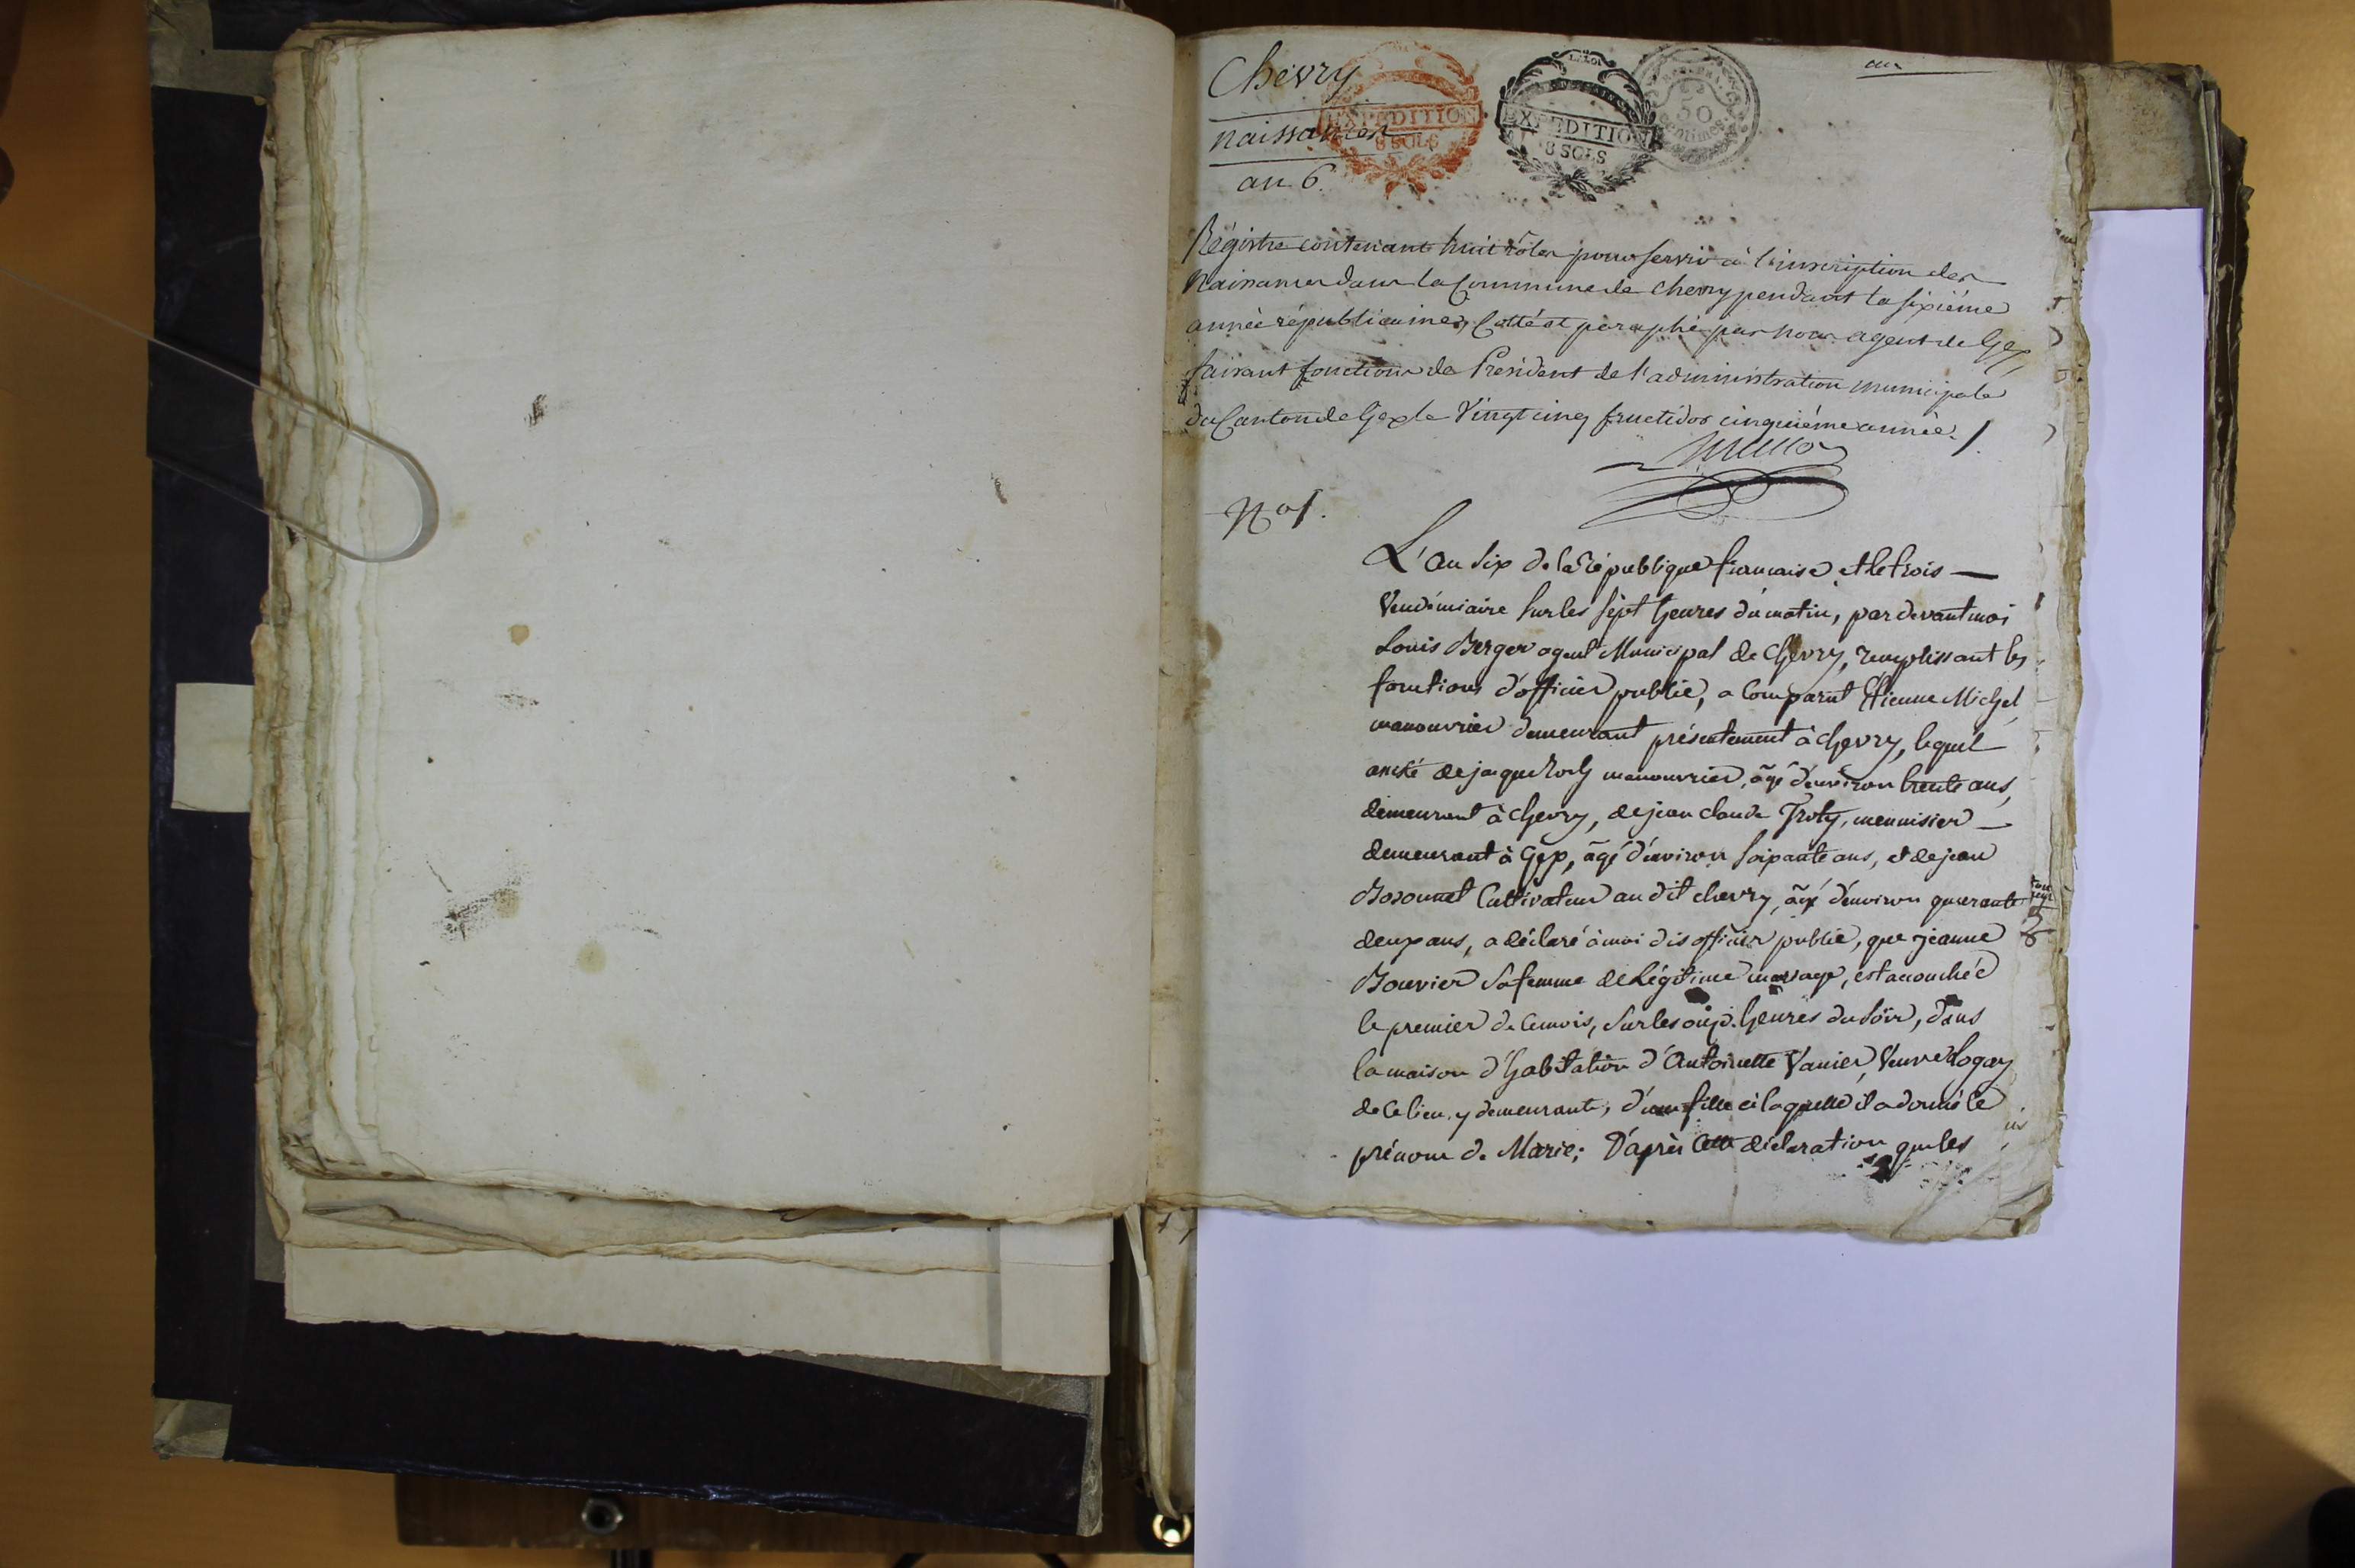 Chevry
naissances
an 6.
EXPEDITION
8 SOLS
LA LOI
EXPEDITION
8 SOLS
50
centimes
an
Régistre contenant huit rôles pour servir à l'inscription des
Naissances dans la Commune de Chevry pendant la sixième
année républicaine, Cotté et paraphé par nous agent de Gex,
faisant fonctions de Président de l'administration municipale
du Canton de Gex le Vingt cinq fructidor cinquième année.
No 1.
L'an Six de la République francaise et le trois —
Vendémiaire Sur les sept heures du matin, par devant moi
Louis Berger agent Municipal de Chevry, remplissant les
fonctions d'officier public, a Comparut Etienne Michel
manouvrier demeurant présentement à Chevry, lequel
de jaque manouvrier, âgé d'environ trente ans,
demeurant à Chevry, de jean claude menuisier —
demeurant à Gex, âgé d'environ soixante ans, et de jean
Cultivateur au dit chevry, âgé d'environ quarante
deux ans, a déclaré à moi dis officier public, que jeanne
Bouvier Sa femme de Légitime mariage, est accouchée
le premier de Ce mois, Sur les onze heures du soir, dans
la maison d'habitation d'Antoinette Vanier, Veuve
de Ce lieu y demeurante, d'une fille à laquelle il a donné le
prénom de Marie; D'après Cette déclaration que les